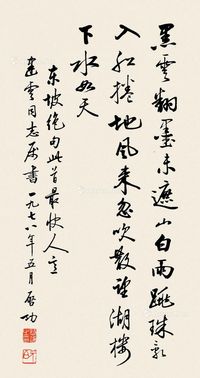 黑雲翻墨未遮山白雨跳珠亂
入船捲地風来忽吹散望湖樓
下水如天
東坡絶句此首最快人意
建雲同志属書一九七八年五月啓功